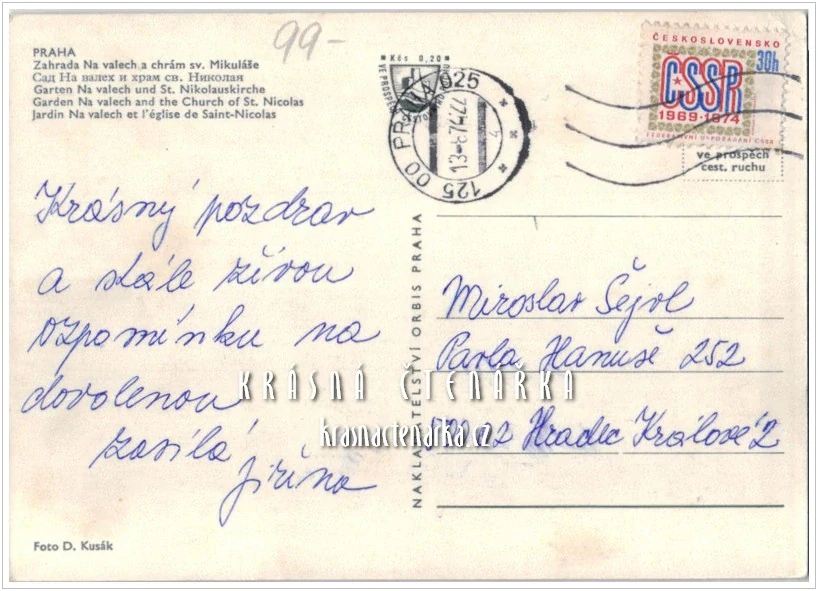 99-
PRAHA
Zahrada Na valech a chrám sv. Mikuláše
Сад На валех и храм св. Николая
Garten Na valech und St. Nikolauskirche
Garden Na valech and the Church of St. Nicolas
Jardin Na valech et l'église de Saint-Nicolas
Kčs 0,20
VE PROSPĚCH
125 00 PRAHA 025
13.-8.74-22
4
125
ČESKOSLOVENSKO
30h
ČSSR
1969-1974
FEDERATIVNÍ USPOŘÁDÁNÍ ČSSR
ve prospěch
cest. ruchu
Krásný pozdrav
a stále živou
vzpomínku na
dovolenou
zasílá
Jiřina
NAKLADATELSTVÍ ORBIS PRAHA
Miroslav Šejvl
Pavla Hanuše 252
Hradec Králové 2
KRÁSNÁ ČTENÁŘKA
krasnactenarka.cz
Foto D. Kusák